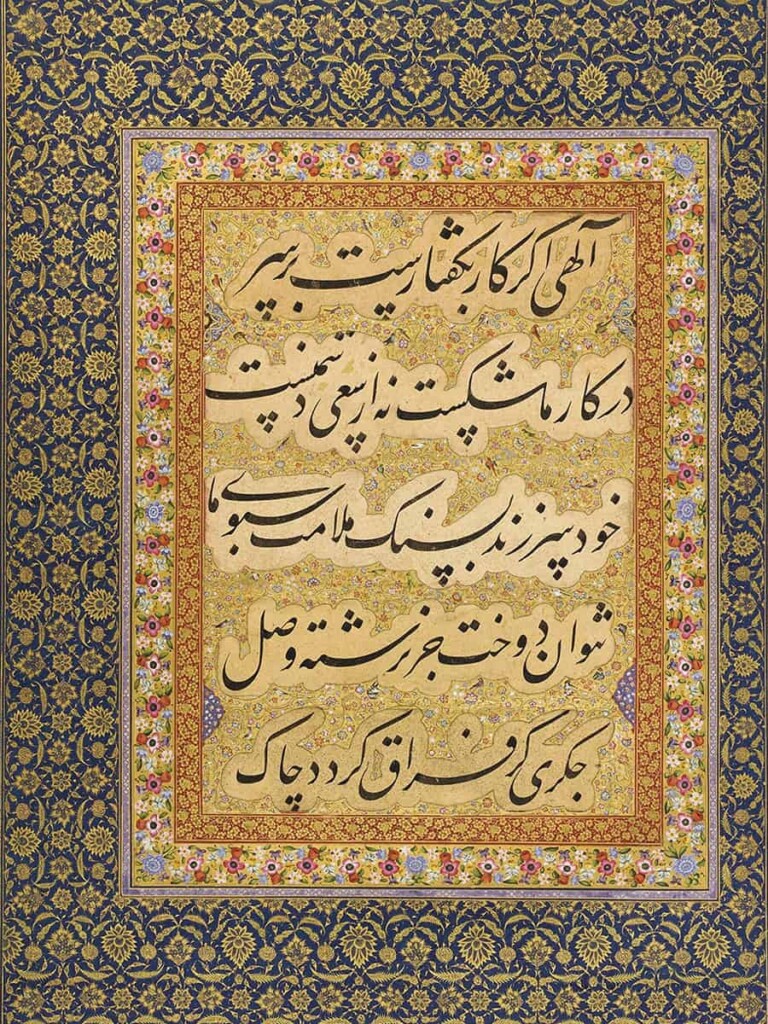 آلهی اکر کار بکفتارست بر سر
در کار ما شکست نه از سعی دشمنست
خود سر زند بسنک ملامت سبوی ما
نتوان دوخت جز برشته وصل
جکری کز فراق کردد چاک